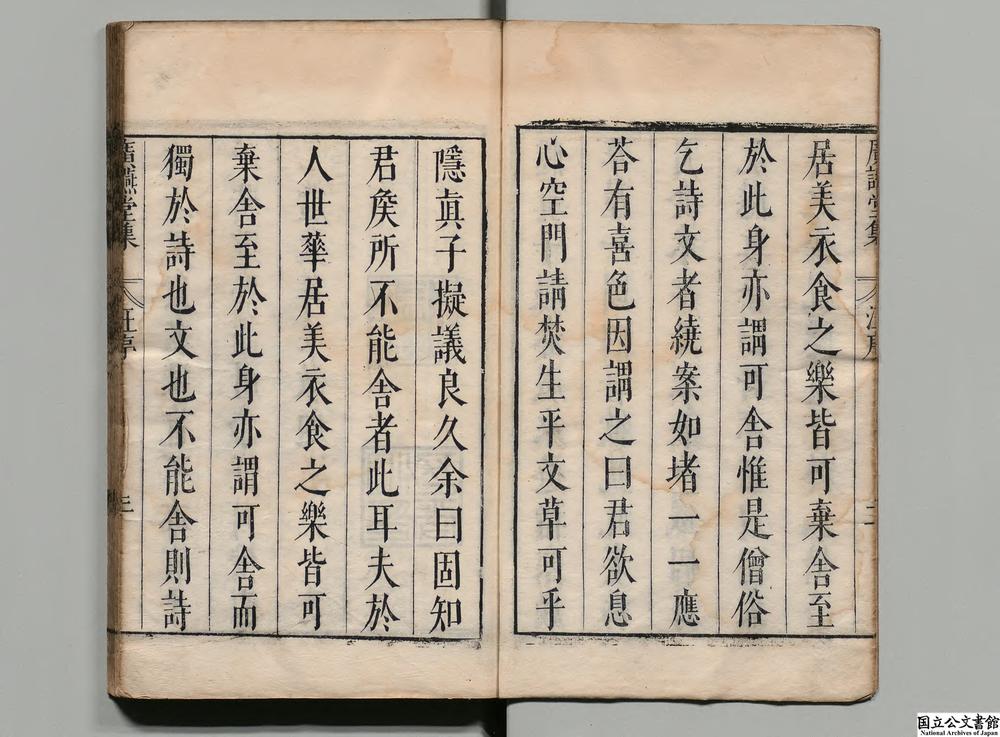 居美衣食之樂皆可棄舍至
於此身亦謂可舍惟是僧俗
乞詩文者繞案如堵一一應
荅有喜色因謂之曰君欲息
心空門請焚生平文草可乎
隱眞子擬議良久余曰固知
君矦所不能舍者此耳夫於
人世華居美衣食之樂皆可
棄舍至於此身亦謂可舍而
獨於詩也文也不能舍則詩
廣讌堂集
汪序
三
国立公文書館
National Archives of Japan